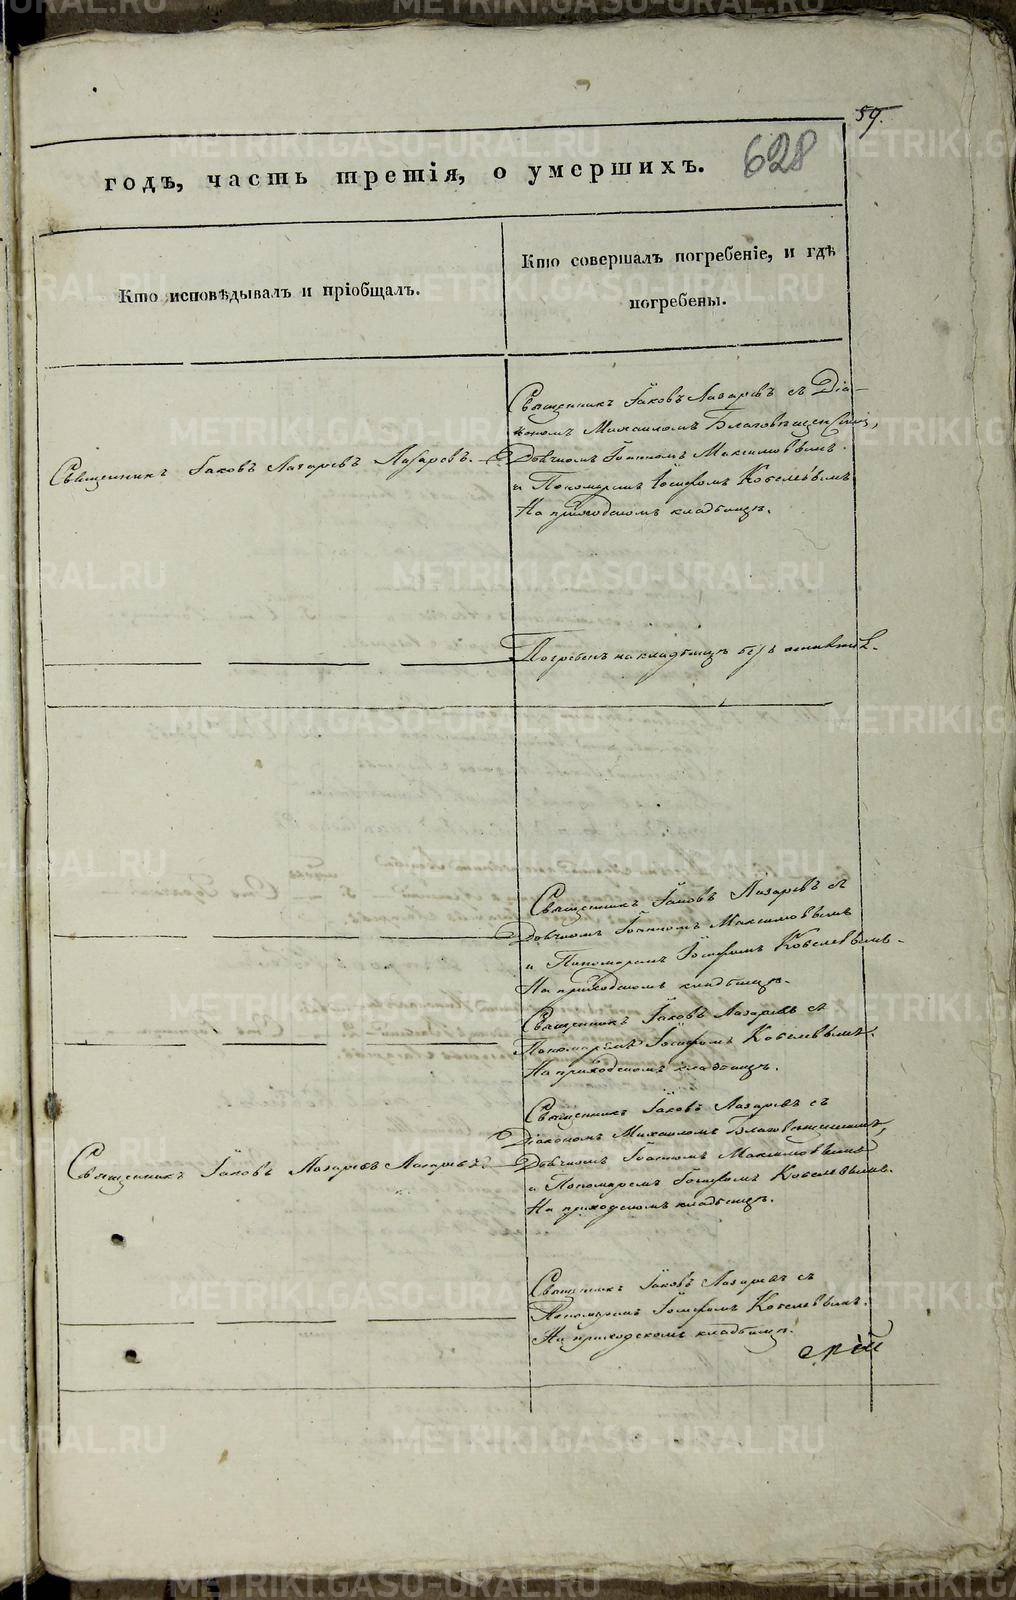 59.
628
годѣ, часть третія, о умершихъ.
Кто исповѣдывалъ и пріобщалъ.
Кто совершалъ погребеніе, и гдѣ
погребены.
Священникъ Іаковъ Лазаревъ Лазаревъ.
Священникъ Іаковъ Лазаревъ съ Діа-
кономъ Михаиломъ Благовѣщенскимъ,
Дьячкомъ Іоанномъ Максимовымъ
и Пономаремъ Іосифомъ Кобелевымъ
На приходскомъ кладбищѣ.
Погребенъ на кладбищѣ безъ
Священникъ Іаковъ Лазаревъ съ
Дьячкомъ Іоанномъ Максимовымъ
и Пономаремъ Іосифомъ Кобелевымъ
На приходскомъ кладбищѣ.
Священникъ Іаковъ Лазаревъ съ
Пономаремъ Іосифомъ Кобелевымъ.
На приходскомъ кладбищѣ.
Священникъ Іаковъ Лазаревъ Лазаревъ.
Священникъ Іаковъ Лазаревъ съ
Діакономъ Михаиломъ Благовѣщенскимъ,
Дьячкомъ Іоанномъ Максимовымъ
и Пономаремъ Іосифомъ Кобелевымъ.
На приходскомъ кладбищѣ.
Священникъ Іаковъ Лазаревъ съ
Пономаремъ Іосифомъ Кобелевымъ.
На приходскомъ кладбищѣ.
METRIKI.GASO-URAL.RU